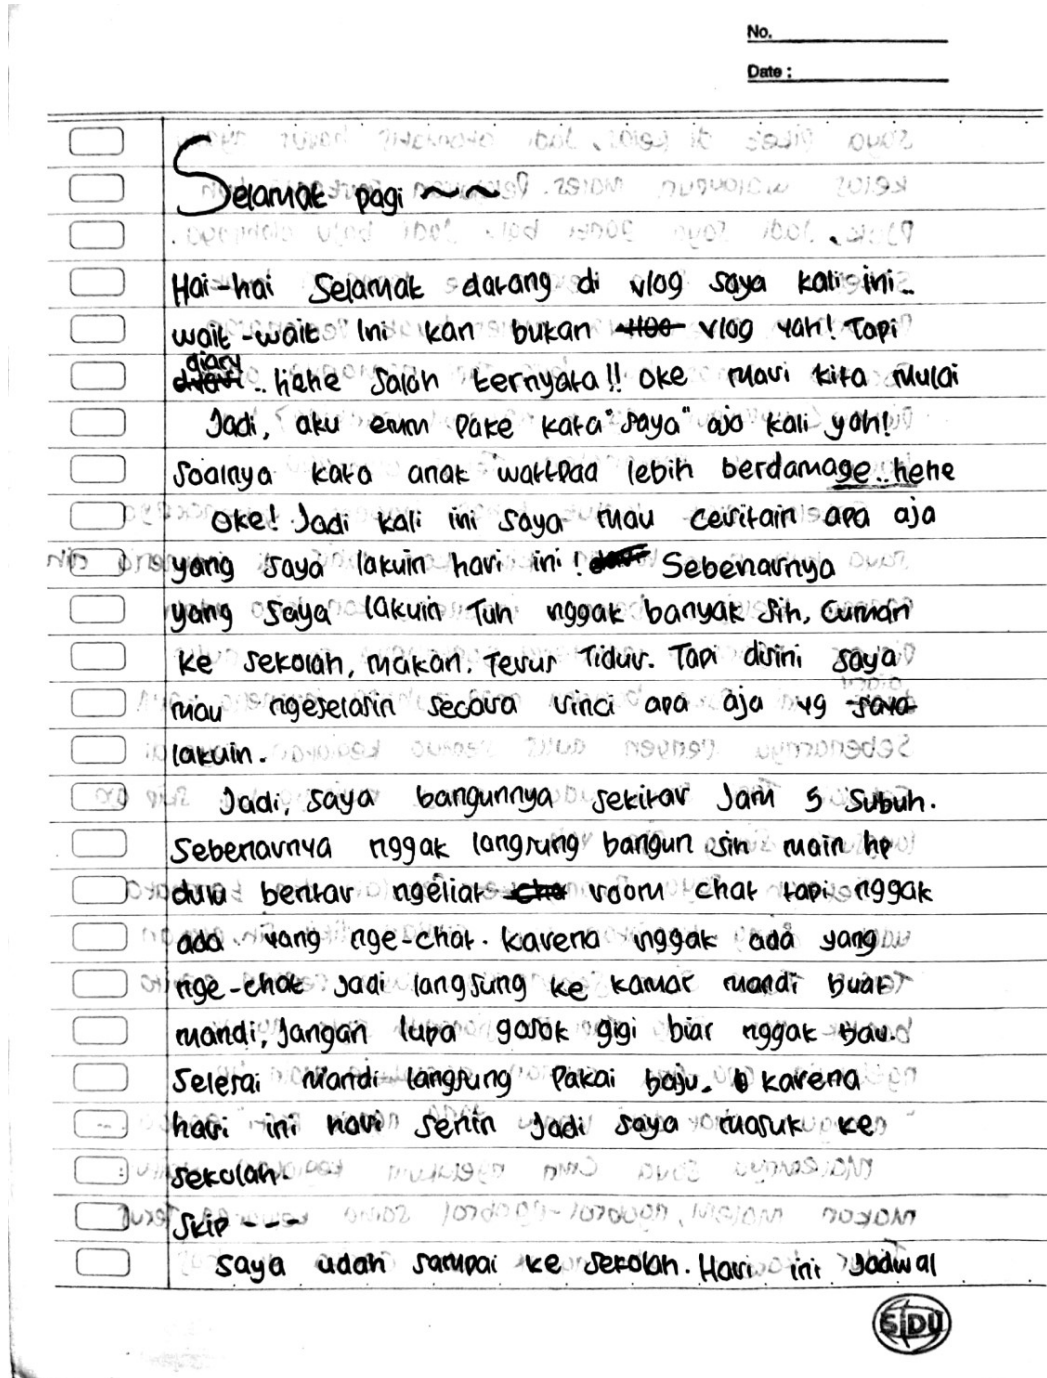 No.
Date :
Selamat pagi ~~
Hai-hai Selamat datang di vlog saya kali ini..
wait-wait Ini kan bukan vlog yah! Tapi
diary .. hehe Salah ternyata!! oke mari kita mulai
Jadi, aku emm pake kata "saya" aja kali yah!
Soalnya kata anak wattpad lebih berdamage..hehe
Oke! Jadi kali ini saya mau ceritain apa aja
yang saya lakuin hari ini! Sebenarnya
yang saya lakuin Tuh nggak banyak sih, cuman
ke sekolah, makan. Terus Tidur. Tapi disini saya
mau ngejelasin secara rinci apa aja yg saya
lakuin.
Jadi, saya bangunnya sekitar Jam 5 Subuh.
Sebenarnya nggak langsung bangun sih main hp
dulu bentar ngeliat room chat tapi nggak
ada yang nge-chat. karena nggak ada yang
nge-chat Jadi langsung ke kamar mandi buat
mandi, Jangan lupa gosok gigi biar nggak bau.
Selesai mandi langsung Pakai baju. karena
hari ini hari senin Jadi saya masuk ke
sekolah.
Skip ---
Saya udah sampai ke sekolah. Hari ini Jadwal
SIDU